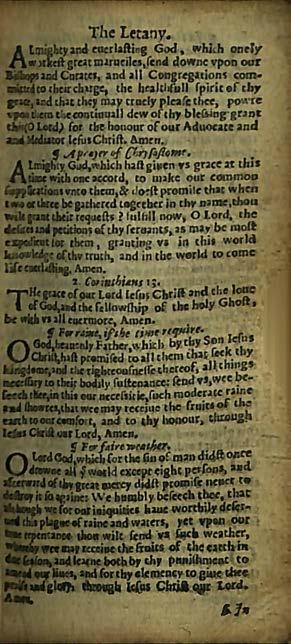 The Letany.
ALmighty and euerlasting God, which onely
workest great maruailes, send downe vpon our
Bishops and Curates, and all Congregations com-
mitted to their charge, the healthfull spirit of thy
grace, and that they may truely please thee, powre
vpon them the continuall dew of thy blessing: grant
this (O Lord) for the honour of our Aduocate and
and Mediator Iesus Christ. Amen.
¶ A prayer of Chrysostome.
ALmighty God, which hast giuen vs grace at this
time with one accord, to make our common
supplications vnto them, & doest promise that when
two or three be gathered together in thy name, thou
wilt grant their requests? fulfill now, O Lord, the
desires and petitions of thy seruants, as may be most
expedient for them, granting vs in this world
knowledge of thy truth, and in the world to come
life euerlasting, Amen.
2. Corinthians 13.
THe grace of our Lord Iesus Christ and the loue
of God, and the fellowship of the holy Ghost,
be with vs all euermore, Amen.
¶ For raine, if the time require.
O God, heauenly Father, which by thy Son Iesus
Christ, hast promised to all them that seek thy
kingdome, and the righteousnesse thereof, all things
necessary to their bodily sustenance: send vs, wee be-
seech thee, in this our necessitie, such moderate raine
and showres, that wee may receiue the fruits of the
earth to our comfort, and to thy honour, through
Iesus Christ our Lord, Amen.
¶ For faire weather.
O Lord God, which for the sin of man didst once
drowne all ẏ world except eight persons, and
afterward of thy great mercy didst promise neuer to
destroy it so againe: We humbly beseech thee, that
although we for our iniquities haue worthily deser-
ued this plague of raine and waters, yet vpon our
true repentance thou wilt send vs such weather,
whereby wee may receiue the fruits of the earth in
due season, and learne both by thy punishment to
amend our liues, and for thy clemency to giue thee
praise and glory through Iesus Christ our Lord.
Amen.